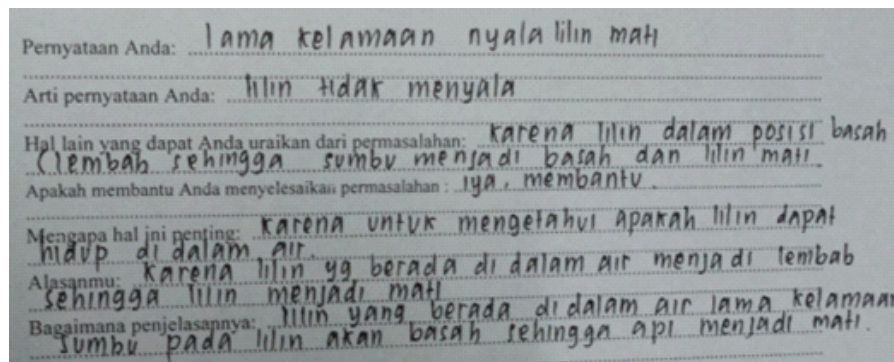 Pernyataan Anda: lama kelamaan nyala lilin mati
Arti pernyataan Anda: lilin tidak menyala
Hal lain yang dapat Anda uraikan dari permasalahan: karena lilin dalam posisi basah
(lembab sehingga sumbu menjadi basah dan lilin mati
Apakah membantu Anda menyelesaikan permasalahan : iya, membantu.
Mengapa hal ini penting: karena untuk mengetahui apakah lilin dapat
hidup di dalam air.
Alasanmu: karena lilin yg berada di dalam air menjadi lembab
sehingga lilin menjadi mati
Bagaimana penjelasannya: lilin yang berada didalam air lama kelamaan
sumbu pada lilin akan basah sehingga api menjadi mati.